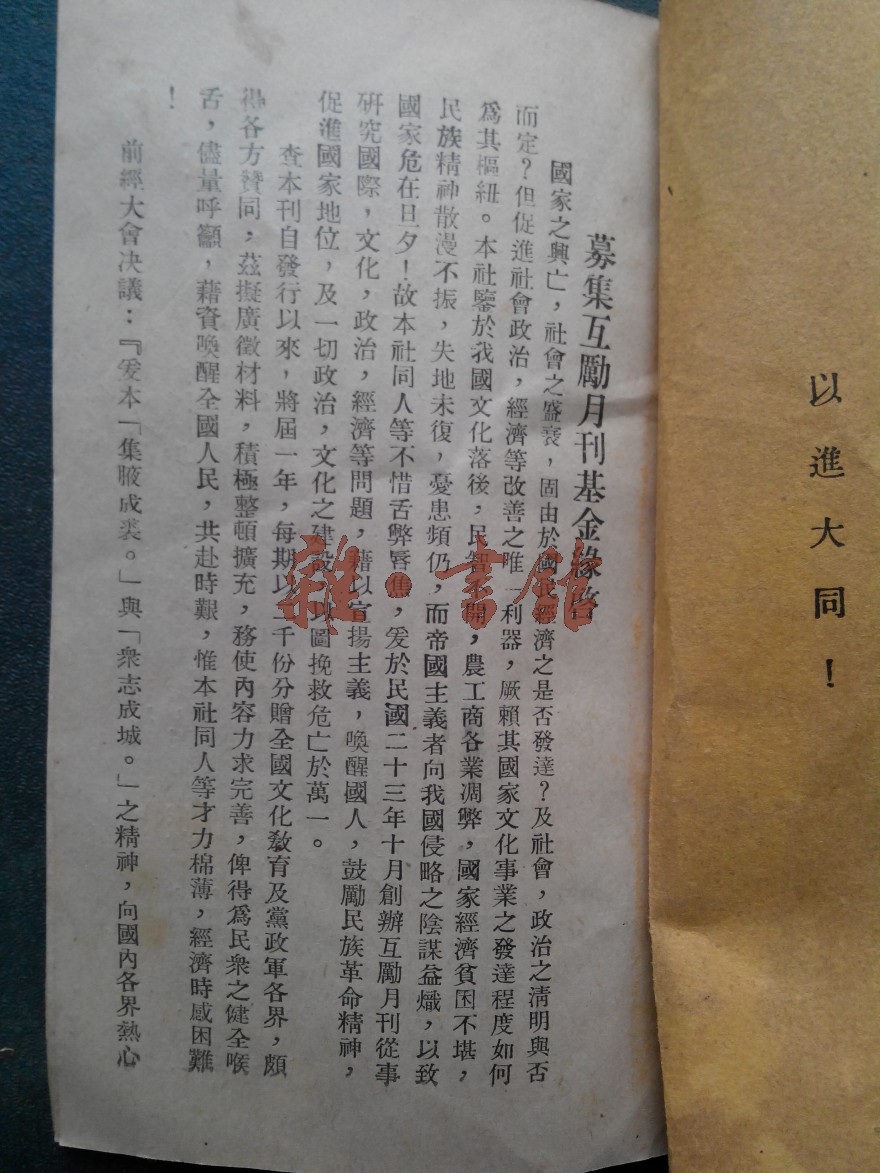 以進大同！
募集互勵月刊基金緣啓
國家之興亡，社會之盛衰，固由於國民經濟之是否發達？及社會，政治之淸明與否
而定？但促進社會政治，經濟等改善之唯一利器，厥賴其國家文化事業之發達程度如何
爲其樞紐。本社鑒於我國文化落後，民智不開，農工商各業凋弊，國家經濟貧困不堪，
民族精神散漫不振，失地未復，憂患頻仍，而帝國主義者向我國侵略之陰謀益熾，以致
國家危在旦夕！故本社同人等不惜舌弊唇焦，爰於民國二十三年十月創辦互勵月刊從事
硏究國際，文化，政治，經濟等問題，藉以宣揚主義，喚醒國人，鼓勵民族革命精神，
促進國家地位，及一切政治，文化之建設，以圖挽救危亡於萬一。
查本刊自發行以來，將屆一年，每期以二千份分贈全國文化敎育及黨政軍各界，頗
得各方贊同，茲擬廣徵材料，積極整頓擴充，務使內容力求完善，俾得爲民衆之健全喉
舌，儘量呼籲，藉資喚醒全國人民，共赴時艱，惟本社同人等才力棉薄，經濟時感困難
！
前經大會決議：『爰本「集腋成裘。」與「衆志成城。」之精神，向國內各界熱心
雜·書館